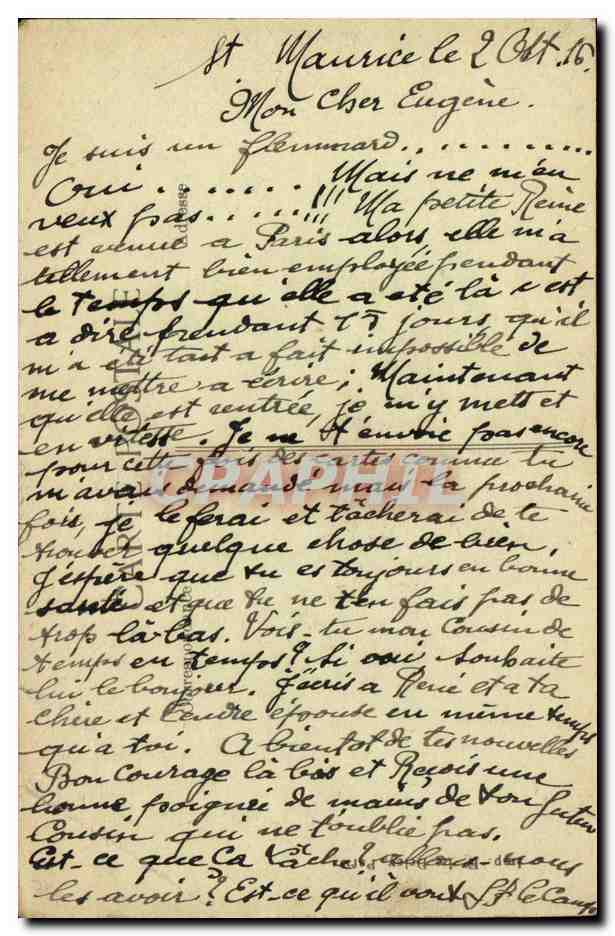 St Maurice le 2 Oct. 16.
Mon Cher Eugène.
Je suis un flemmard...........
Oui....... Mais ne m'en
veux pas.....!!! Ma petite Reine
est venue a Paris alors, elle m'a
tellement bien employée pendant
le temps qu'elle a eté là c'est
a dire pendant 15 jours, qu'il
m'a été tout a fait impossible de
me mettre a écrire; Maintenant
qu'elle est rentrée, je m'y mett et
en vitesse. Je ne t'envoie pas encore
pour cette fois des cartes comme tu
m'avais demandé mais la prochaine
fois, je le ferai et tâcherai de te
trouver quelque chose de bien.
J'éspère que tu es toujours en bonne
santé et que tu ne t'en fais pas de
trop là-bas. Vois-tu mon Cousin de
temps en temps? Si oui souhaite
lui le bonjour. J'écris a René et a ta
Chère et tendre épouse en même temps
qu'a toi. A bientot de tes nouvelles
Bon courage là bas et Reçois une
bonne poignée de mains de ton futur
Cousin qui ne t'oublie pas.
Est-ce que Ca tâche? allons-nous
les avoir? Est-ce qu'il vont
CARTE POSTALE
Correspondance
Adresse
CPAPHIL